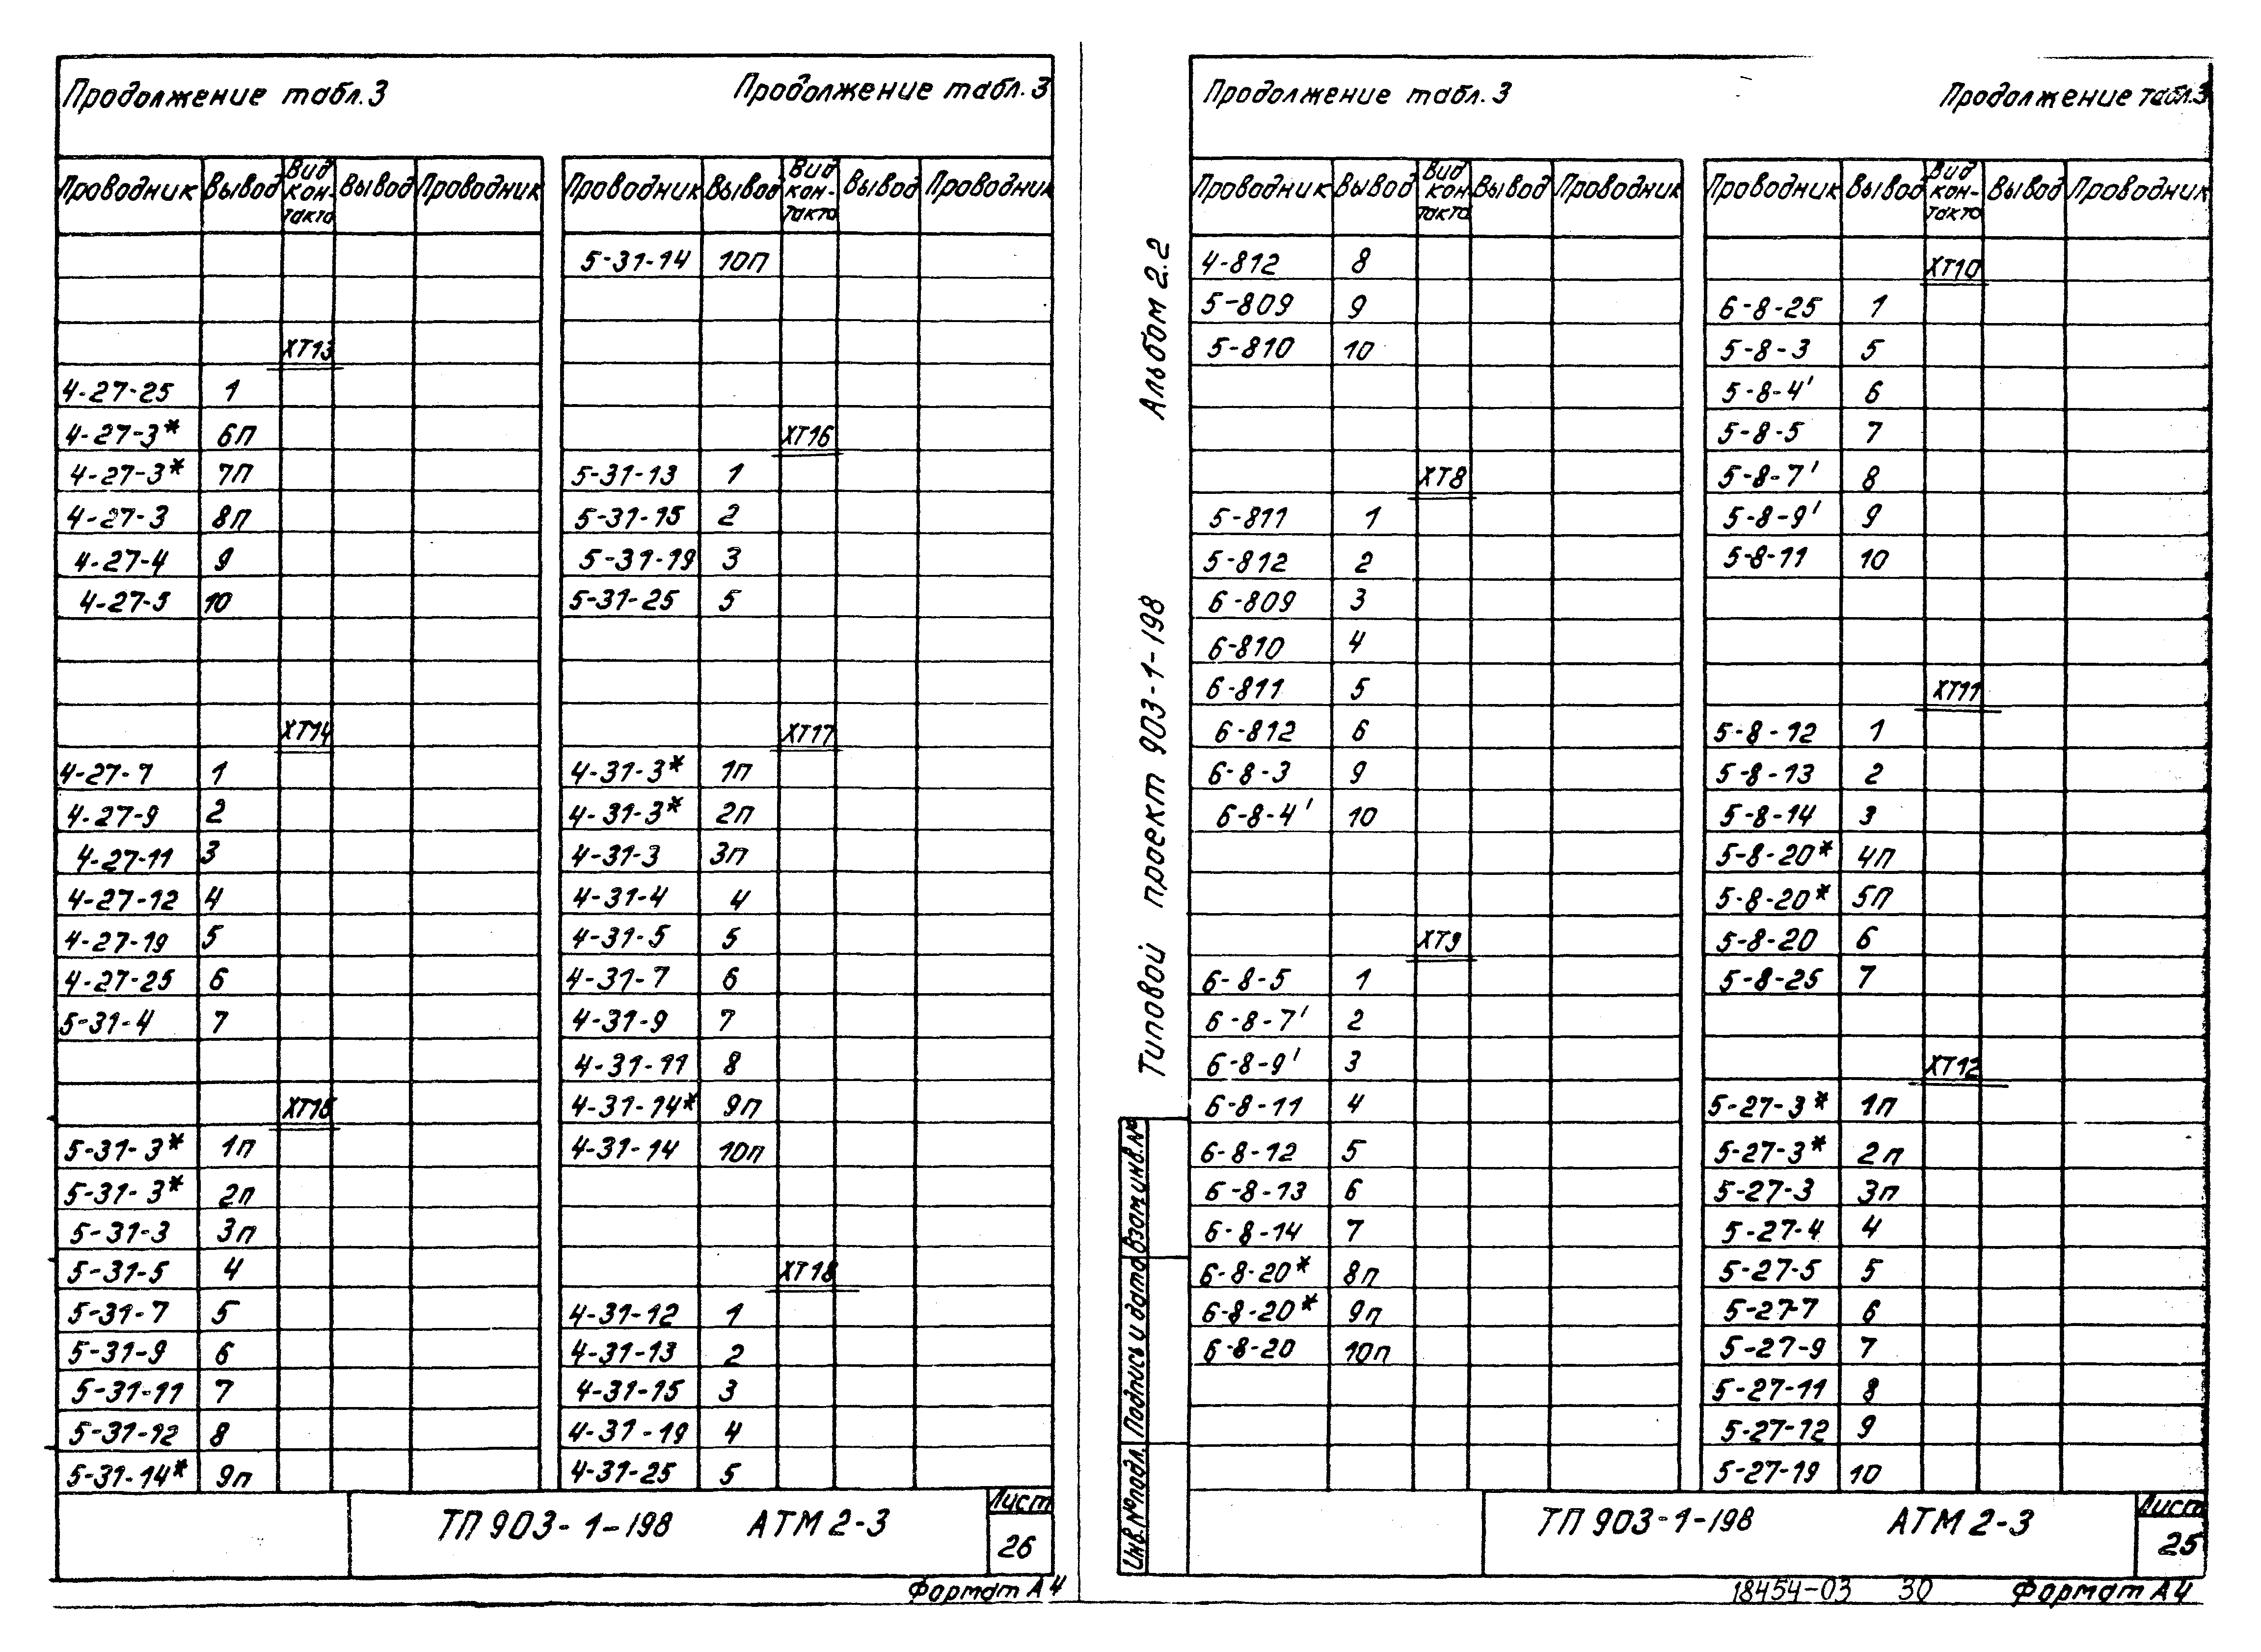 Продолжение табл.3
Продолжение табл.3
Проводник Вывод Вид кон-такта Вывод Проводник
ХТ13
4-27-25 1
4-27-3* 6П
4-27-3* 7П
4-27-3 8П
4-27-4 9
4-27-5 10
ХТ14
4-27-7 1
4-27-9 2
4-27-11 3
4-27-12 4
4-27-19 5
4-27-25 6
5-31-4 7
ХТ15
5-31-3* 1п
5-31-3* 2п
5-31-3 3п
5-31-5 4
5-31-7 5
5-31-9 6
5-31-11 7
5-31-12 8
5-31-14* 9п
Проводник Вывод Вид кон-такта Вывод Проводник
5-31-14 10П
ХТ16
5-31-13 1
5-31-15 2
5-31-19 3
5-31-25 5
ХТ17
4-31-3* 1п
4-31-3* 2п
4-31-3 3п
4-31-4 4
4-31-5 5
4-31-7 6
4-31-9 7
4-31-11 8
4-31-14* 9п
4-31-14 10п
ХТ18
4-31-12 1
4-31-13 2
4-31-15 3
4-31-19 4
4-31-25 5
ТП 903-1-198 АТМ 2-3
Лист
26
Формат А4
Альбом 2.2
Типовой проект 903-1-198
Взам.инв.№
Подпись и дата
Инв.№подл.
Продолжение табл.3
Продолжение табл.3
Проводник Вывод Вид кон-такта Вывод Проводник
4-812 8
5-809 9
5-810 10
ХТ8
5-811 1
5-812 2
6-809 3
6-810 4
6-811 5
6-812 6
6-8-3 9
6-8-4' 10
ХТ9
6-8-5 1
6-8-7' 2
6-8-9' 3
6-8-11 4
6-8-12 5
6-8-13 6
6-8-14 7
6-8-20* 8п
6-8-20* 9п
6-8-20 10п
Проводник Вывод Вид кон-такта Вывод Проводник
ХТ10
6-8-25 1
5-8-3 5
5-8-4' 6
5-8-5 7
5-8-7' 8
5-8-9' 9
5-8-11 10
ХТ11
5-8-12 1
5-8-13 2
5-8-14 3
5-8-20* 4п
5-8-20* 5П
5-8-20 6
5-8-25 7
ХТ12
5-27-3* 1п
5-27-3* 2п
5-27-3 3п
5-27-4 4
5-27-5 5
5-27-7 6
5-27-9 7
5-27-11 8
5-27-12 9
5-27-19 10
ТП 903-1-198 АТМ 2-3
Лист
25
18454-03 30 Формат А4